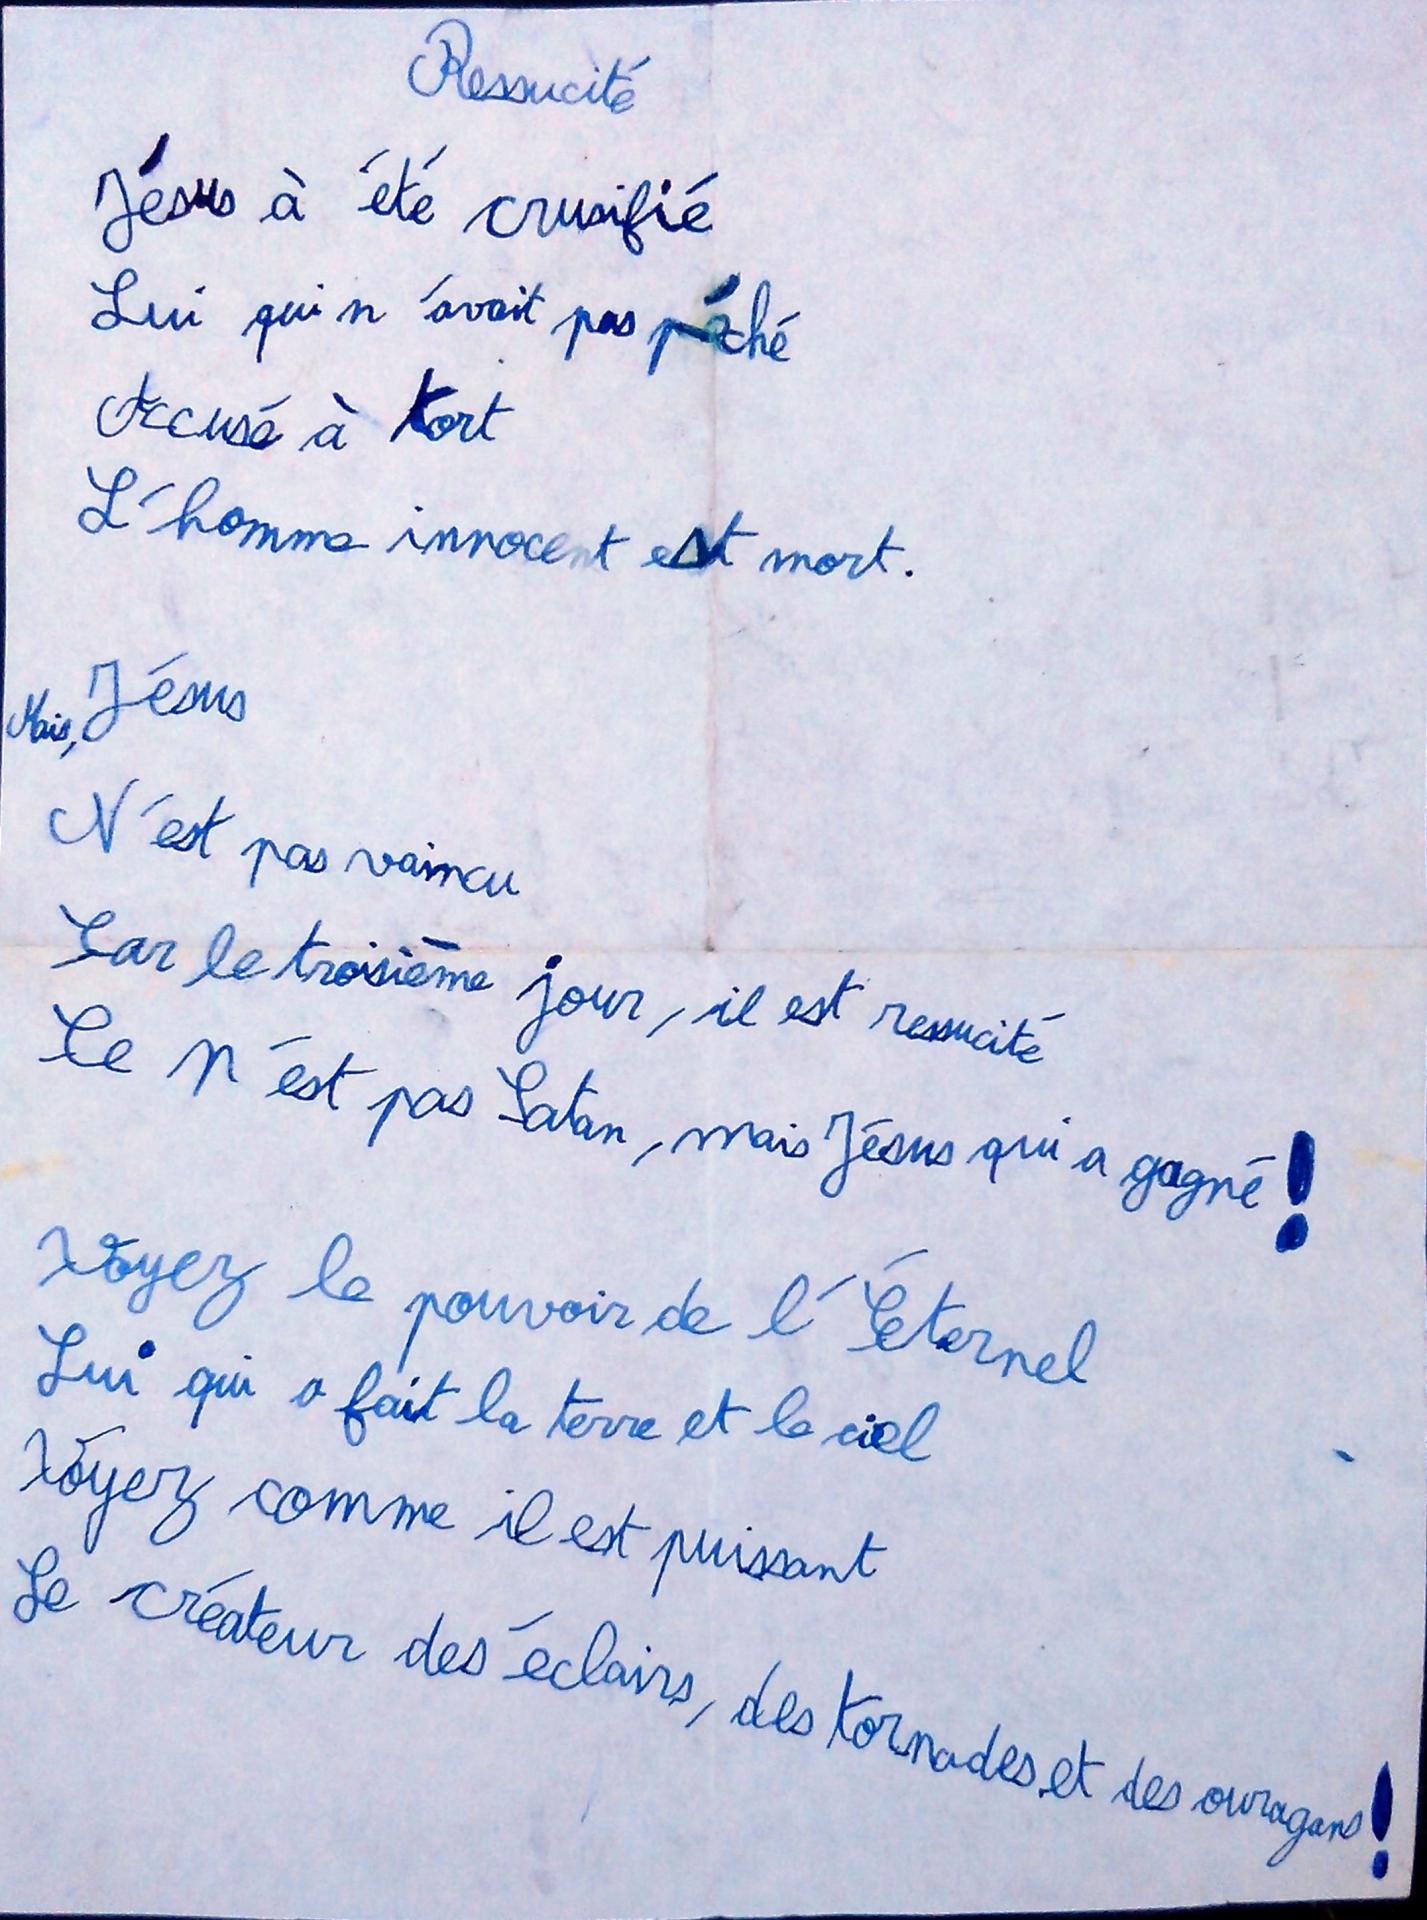 Ressucité
Jésus à été crusifié
Lui qui n'avait pas péché
Accusé à tort
L'homme innocent est mort.
Mais, Jésus
N'est pas vaincu
Car le troisième jour, il est ressucité
Ce n'est pas Satan, mais Jésus qui a gagné !
Voyez le pouvoir de l'Éternel
Lui qui a fait la terre et le ciel
Voyez comme il est puissant
Le créateur des éclairs, des tornades et des ouragans !